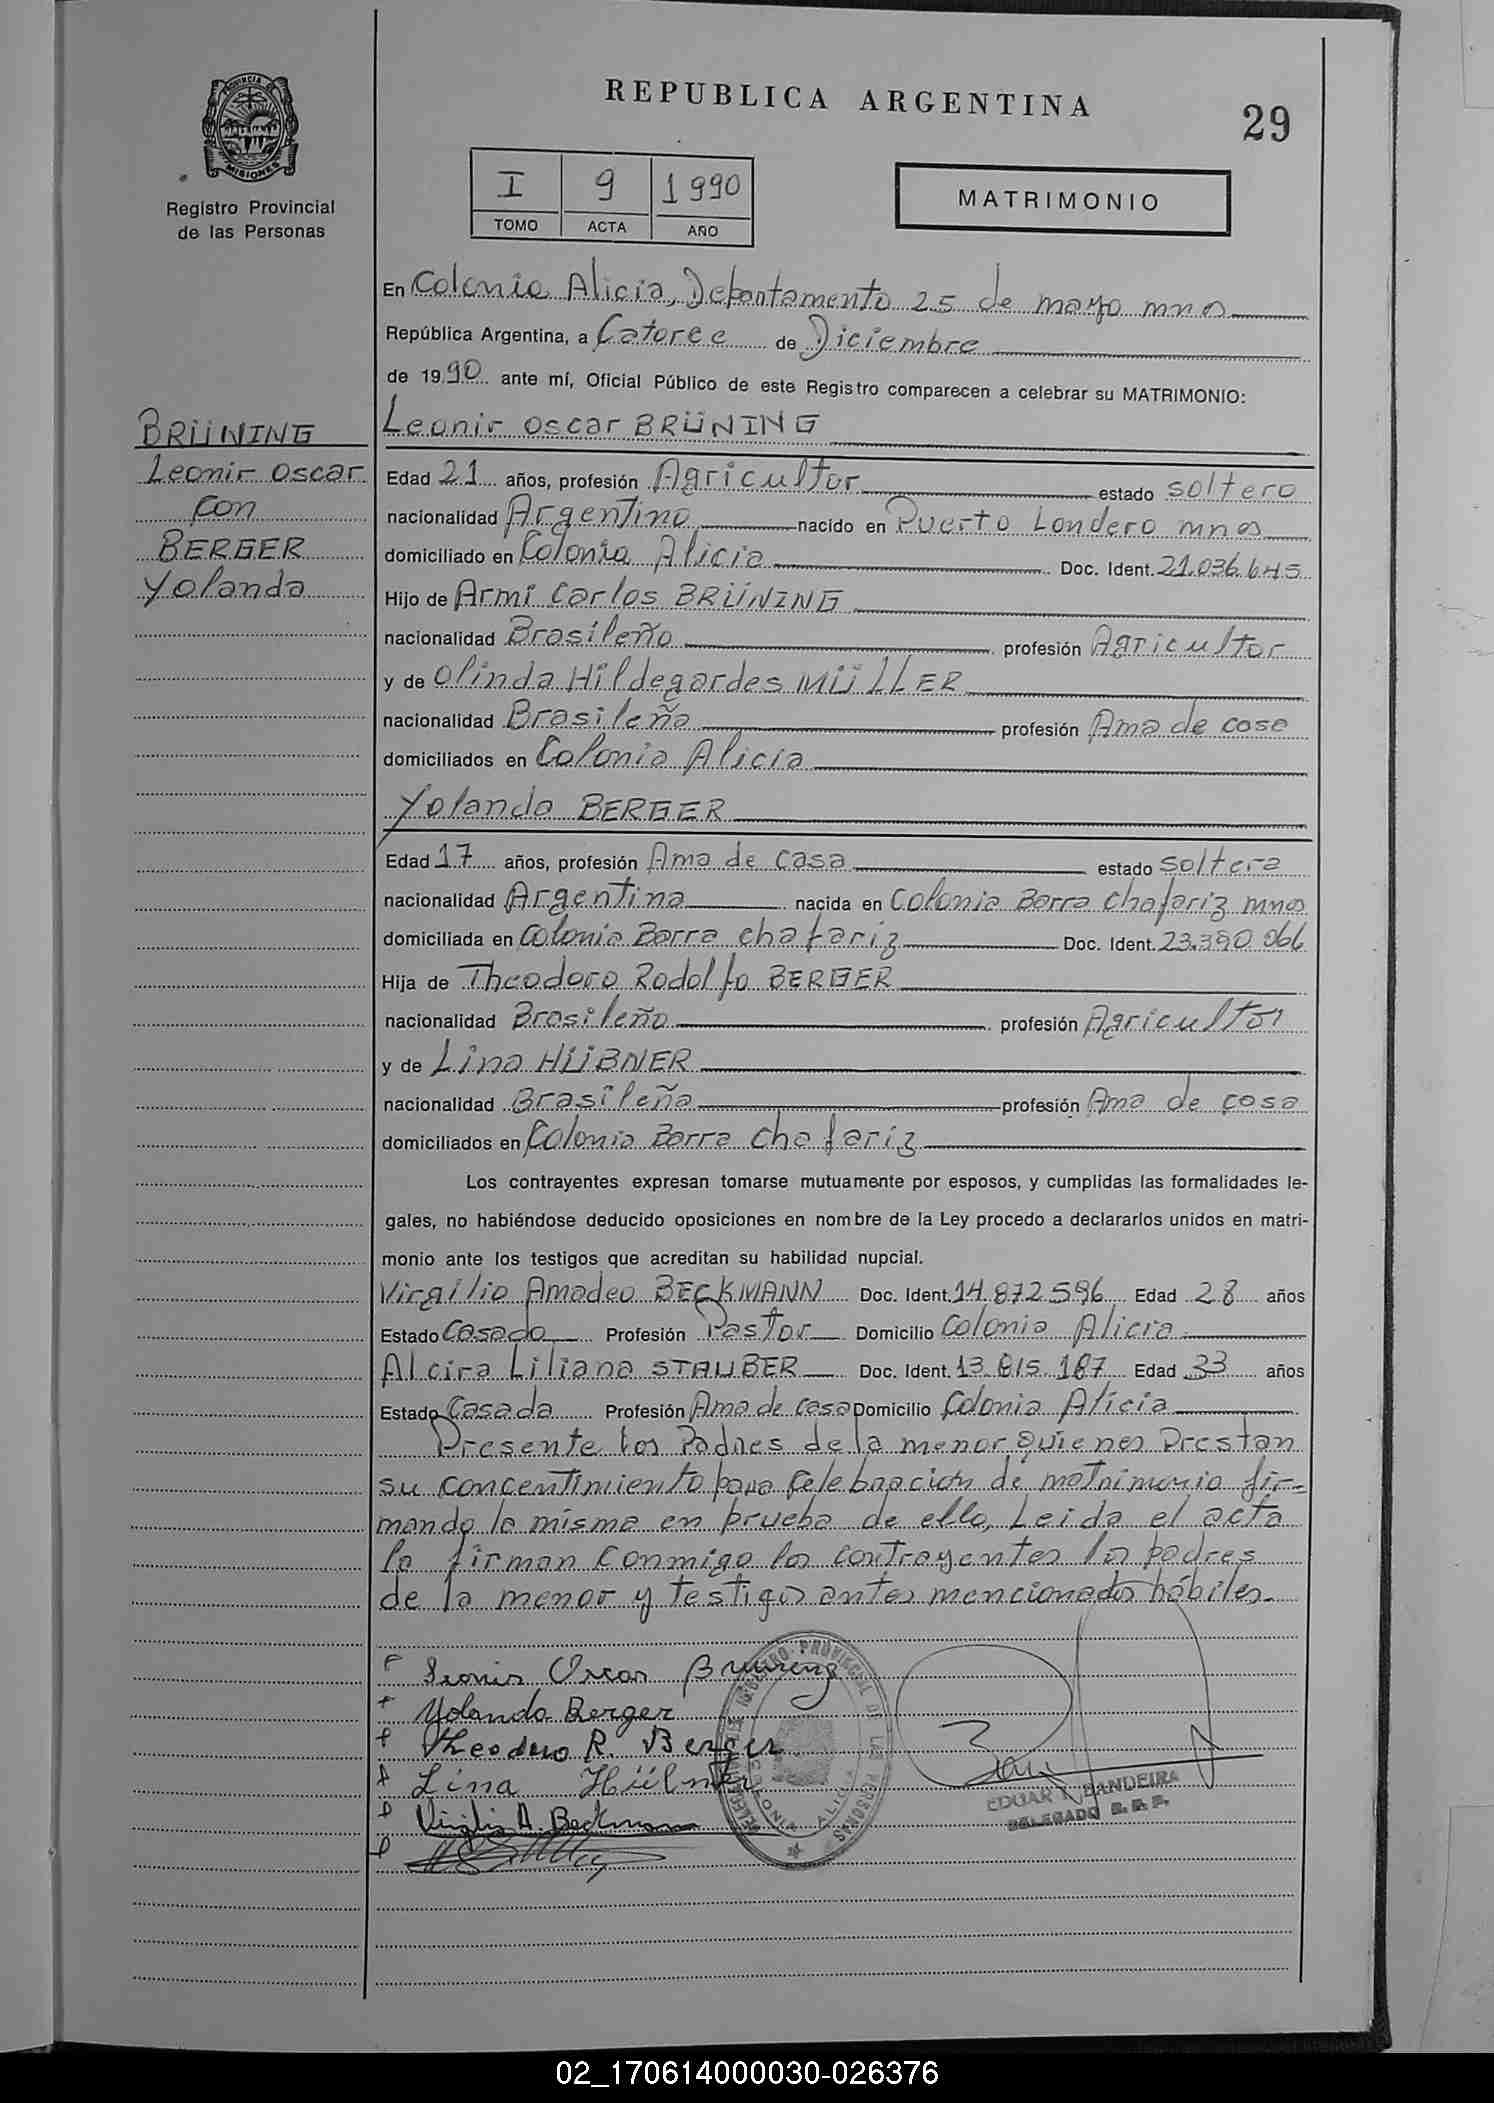 REPUBLICA ARGENTINA
29
PROVINCIA DE
MISIONES
Registro Provincial
de las Personas
I 9 1990
TOMO ACTA AÑO
MATRIMONIO
En Colonia Alicia, Departamento 25 de mayo mnes
República Argentina, a Catorce de Diciembre
de 1990 ante mí, Oficial Público de este Registro comparecen a celebrar su MATRIMONIO:
BRÜNING
Leonir Oscar
con
BERGER
Yolanda
Leonir Oscar BRÜNING
Edad 21 años, profesión Agricultor estado soltero
nacionalidad Argentino nacido en Puerto Londero mnes
domiciliado en Colonia Alicia Doc. Ident. 21.036.645
Hijo de Armi Carlos BRÜNING
nacionalidad Brasileño profesión Agricultor
y de Olinda Hildegardes MÜLLER
nacionalidad Brasileña profesión Ama de casa
domiciliados en Colonia Alicia
Yolanda BERGER
Edad 17 años, profesión Ama de casa estado soltera
nacionalidad Argentina nacida en Colonia Barra Chafariz mnes
domiciliada en Colonia Barra Chafariz Doc. Ident. 23.390.066
Hija de Theodoro Rodolfo BERGER
nacionalidad Brasileño profesión Agricultor
y de Lina HÜBNER
nacionalidad Brasileña profesión Ama de casa
domiciliados en Colonia Barra Chafariz
Los contrayentes expresan tomarse mutuamente por esposos, y cumplidas las formalidades le-
gales, no habiéndose deducido oposiciones en nombre de la Ley procedo a declararlos unidos en matri-
monio ante los testigos que acreditan su habilidad nupcial.
Virgilio Amadeo BECKMANN Doc. Ident. 14.872.596 Edad 28 años
Estado Casado Profesión Pastor Domicilio Colonia Alicia
Alcira Liliana STAUBER Doc. Ident. 13.815.187 Edad 33 años
Estado Casada Profesión Ama de casa Domicilio Colonia Alicia
Presente los Padres de la menor quienes Prestan
su concentimiento para celebracion de matrimonio fir-
mando la misma en prueba de ello, Leida el acta
la firman conmigo los contrayentes los padres
de la menor y testigos antes mencionados hábiles.
Leonir Oscar Brüning
Yolanda Berger
Theodoro R. Berger
Lina Hübner
Virgilio A. Beckmann
REGISTRO PROVINCIAL DE LAS PERSONAS
COLONIA ALICIA
EDGAR BANDEIRA
DELEGADO R. P. P.
02_170614000030-026376